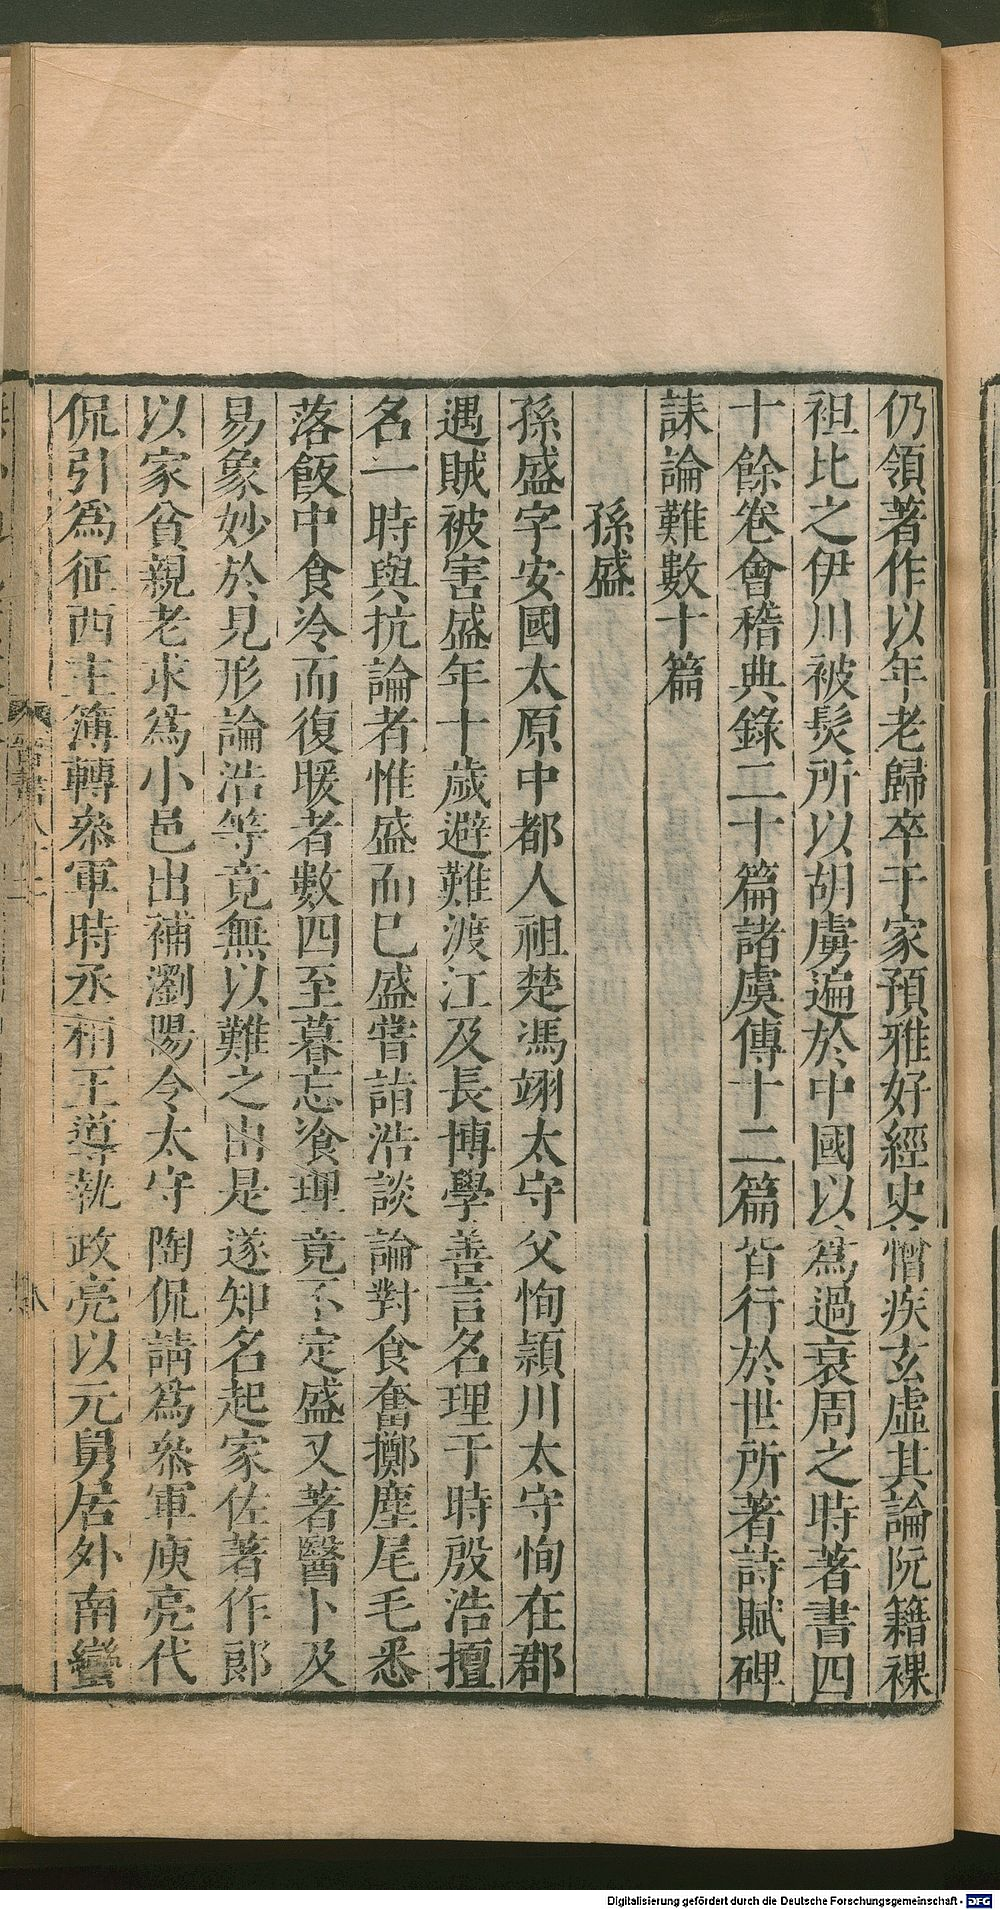 仍領著作以年老歸卒于家預雅好經史憎疾玄虛其論阮籍裸
袒比之伊川被髮所以胡虜遍於中國以爲過衰周之時著書四
十餘卷會稽典錄二十篇諸虞傳十二篇皆行於世所著詩賦碑
誄論難數十篇
孫盛
孫盛字安國太原中都人祖楚馮翊太守父恂潁川太守恂在郡
遇賊被害盛年十歲避難渡江及長博學善言名理于時殷浩擅
名一時與抗論者惟盛而巳盛嘗詣浩談論對食奮擲麈尾毛悉
落飯中食冷而復暖者數四至暮忘飡理竟不定盛又著醫卜及
易象妙於見形論浩等竟無以難之由是遂知名起家佐著作郎
以家貧親老求爲小邑出補瀏陽令太守陶侃請爲叅軍庾亮代
侃引爲征西主簿轉叅軍時丞相王導執政亮以元舅居外南蠻
Digitalisierung gefördert durch die Deutsche Forschungsgemeinschaft - DFG